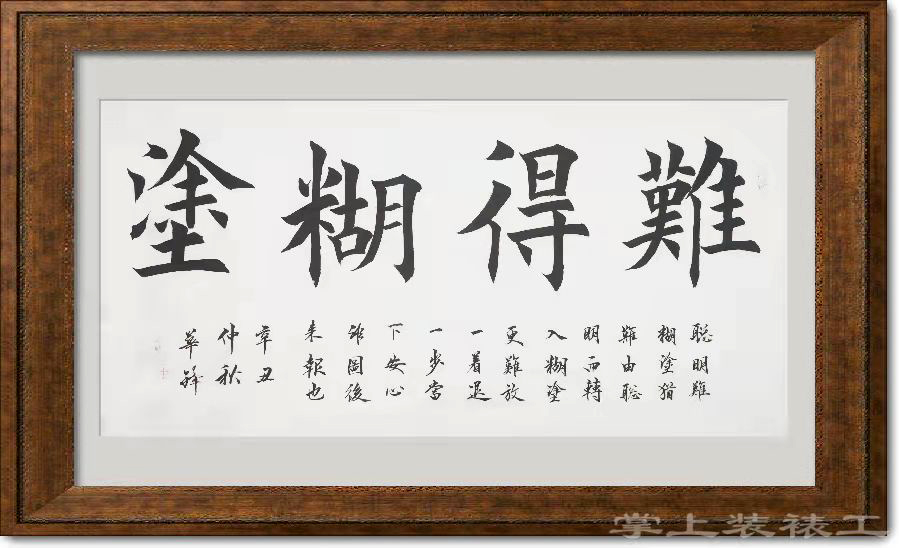 難得糊塗
聪明難
糊塗猶
難由聪
明而轉
入糊塗
更難放
一着退
一步當
下安心
非圖後
来報也
辛丑
仲秋
華
掌上装裱工